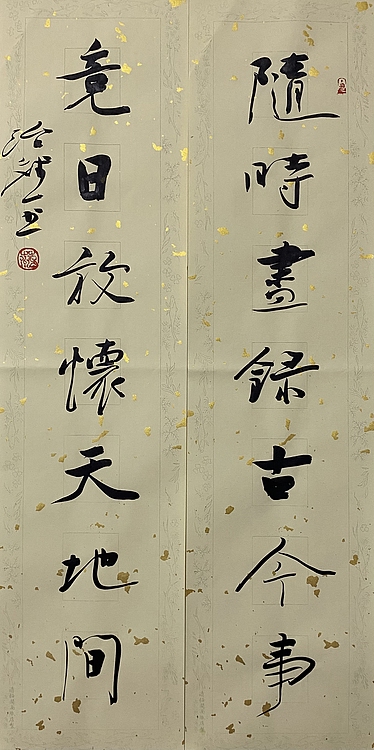 隨時盡錄古今事
竟日放懷天地間